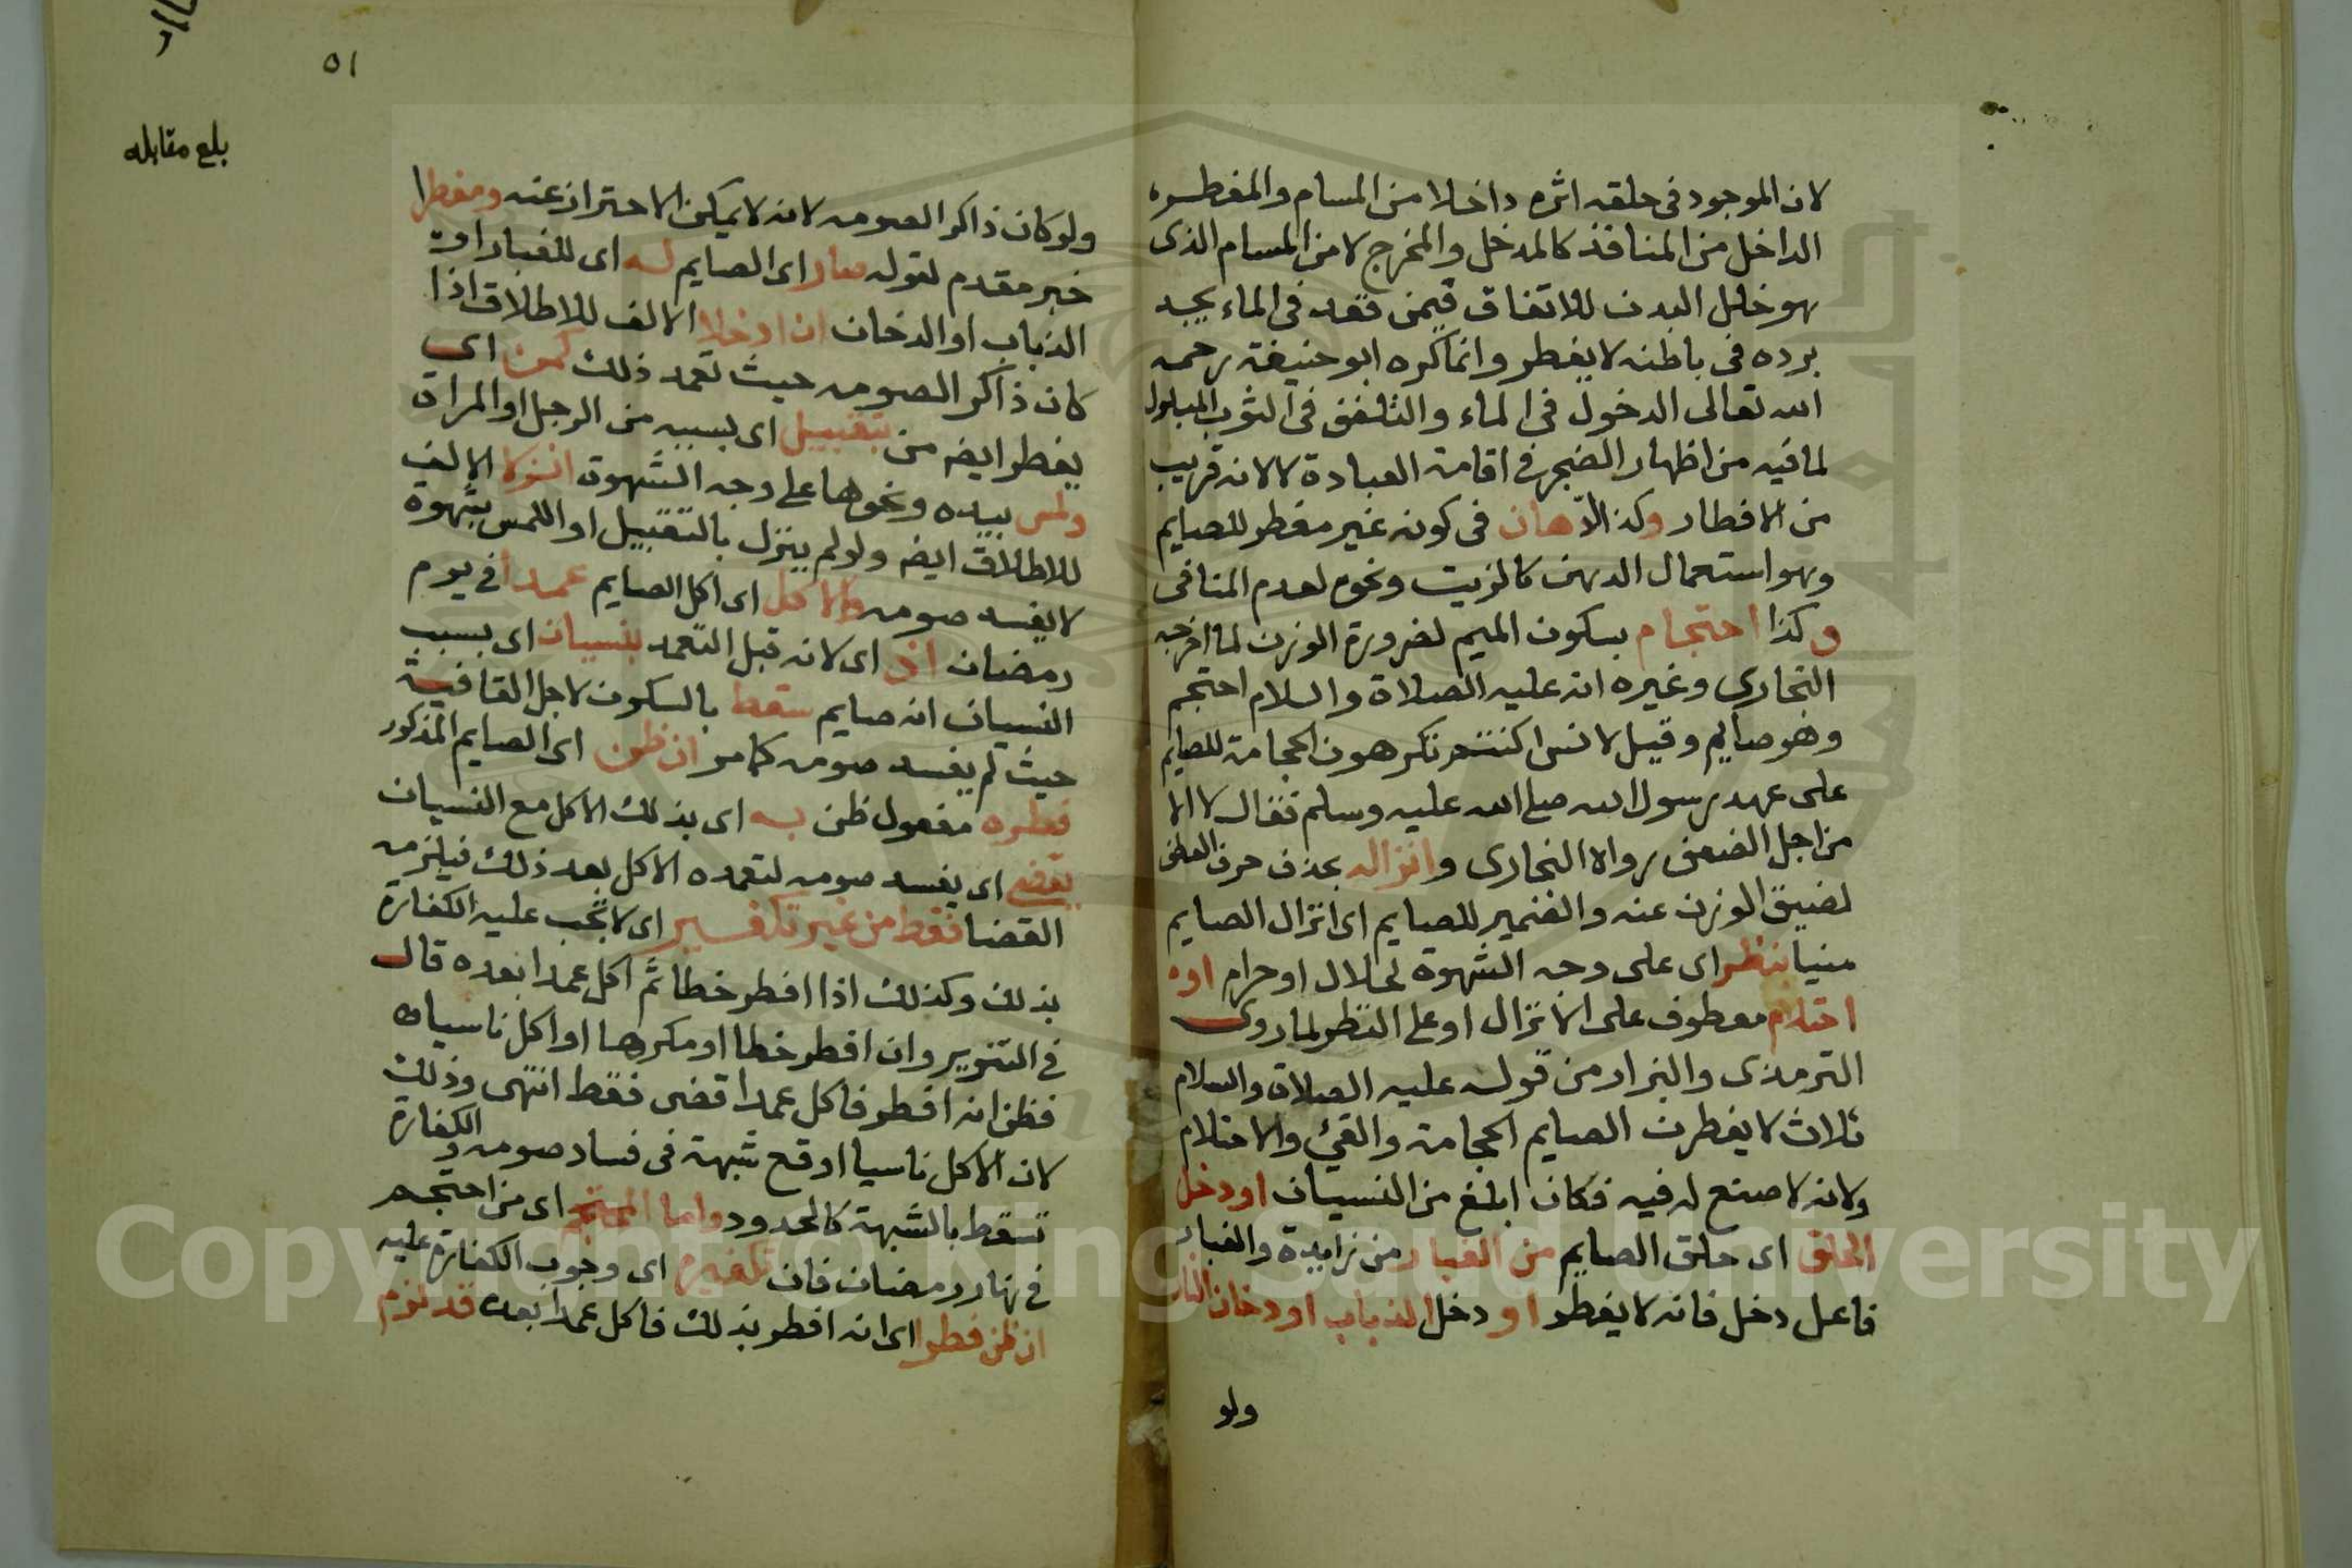 لان الموجود فى حلقه اثره داخلا من المسام والمفطره
الداخل من المنافذ كالمدخل والمخرج لا من المسام الذى
هو خلل البدن للاتفاق فيمن قعد فى الماء يجد
برده فى باطنه لا يفطر وانما كره ابو حنيفة رحمه
الله تعالى الدخول فى الماء والتلفف فى الثوب المبلول
لما فيه من اظهار الضجر فى اقامة العبادة لا لانه قريب
من الافطار وكذا الادهان فى كونه غير مفطر للصايم
وهو استعمال الدهن كالزيت ونحوه لعدم المنافى
وكذا احتجام بسكون الميم لضرورة الوزن لما اخرجه
البخارى وغيره انه عليه الصلاة والسلام احتجم
وهو صايم وقيل لانس اكنتم تكرهون الحجامة للصايم
على عهد رسول الله صلى الله عليه وسلم فقال لا الا
من اجل الضعف رواه البخارى وانزاله بحذف حرف العطف
لضيق الوزن عنه والضمير للصايم اى انزال الصايم
منيا بنظر اى على وجه الشهوة لحلال او حرام او
احتلام معطوف على الانزال او على النظر لما روى
الترمذى والبزار من قوله عليه الصلاة والسلام
ثلاث لا يفطرن الصايم الحجامة والقيئ والاحتلام
ولانه لا صنع له فيه فكان ابلغ من النسيان او دخل
الحلق اى حلق الصايم من الغبار من زايدة والغبار
فاعل دخل فانه لا يفطر او دخل الذباب او دخان النار
ولو
٥١
بلغ مقابله
ولو كان ذاكر الصومه لانه لا يمكن الاحتراز عنه ومفطرا
خبر مقدم لقوله صار اى الصايم له اى للغبار او
الذباب او الدخان ان ادخلا الالف للاطلاق اذا
كان ذاكر الصومه حيث تعمد ذلك كمن اى
يفطر ايضه من بتقبيل اى بسببه من الرجل او المراة
ولمس بيده ونحوها على وجه الشهوة انزلا الالف
للاطلاق ايضه ولو لم ينزل بالتقبيل او اللمس بشهوة
لا يفسد صومه والاكل اى اكل الصايم عمدا فى يوم
رمضان اذ اى لانه قبل التعمد بنسيان اى بسبب
النسيان انه صايم سقط بالسكون لاجل القافية
حيث لم يفسد صومه كما مر ان ظن اى الصايم المذكور
فطره مفعول ظن به اى بذلك الاكل مع النسيان
يقضى اى يفسد صومه لتعمده الاكل بعد ذلك فيلزمه
القضا فقط من غير تكفير اى لا تجب عليه الكفارة
بذلك وكذلك اذا افطر خطا ثم اكل عمدا بعده قال
فى التنوير وان افطر خطا او مكرها او اكل ناسيا
فظن انه افطر فاكل عمدا قضى فقط انتهى وذلك
لان الاكل ناسيا اوقع شبهة فى فساد صومه والكفارة
تسقط بالشبهة كالحدود واما المحتجم اى من احتجم
فى نهار رمضان فان تكفيره اى وجوب الكفارة عليه
ان ظن فطرا اى انه افطر بذلك فاكل عمدا بعده قد لزم
Copyright © King Saud University